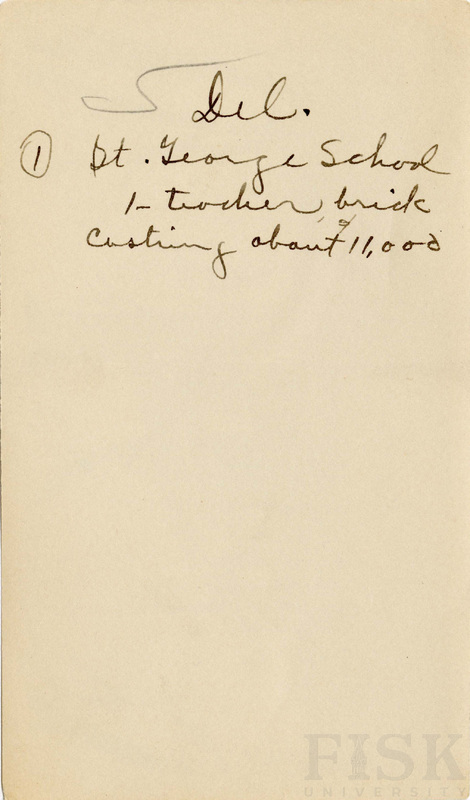 Del.
① St. George School
1-teacher, brick
costing about $11,000
FISK
UNIVERSITY